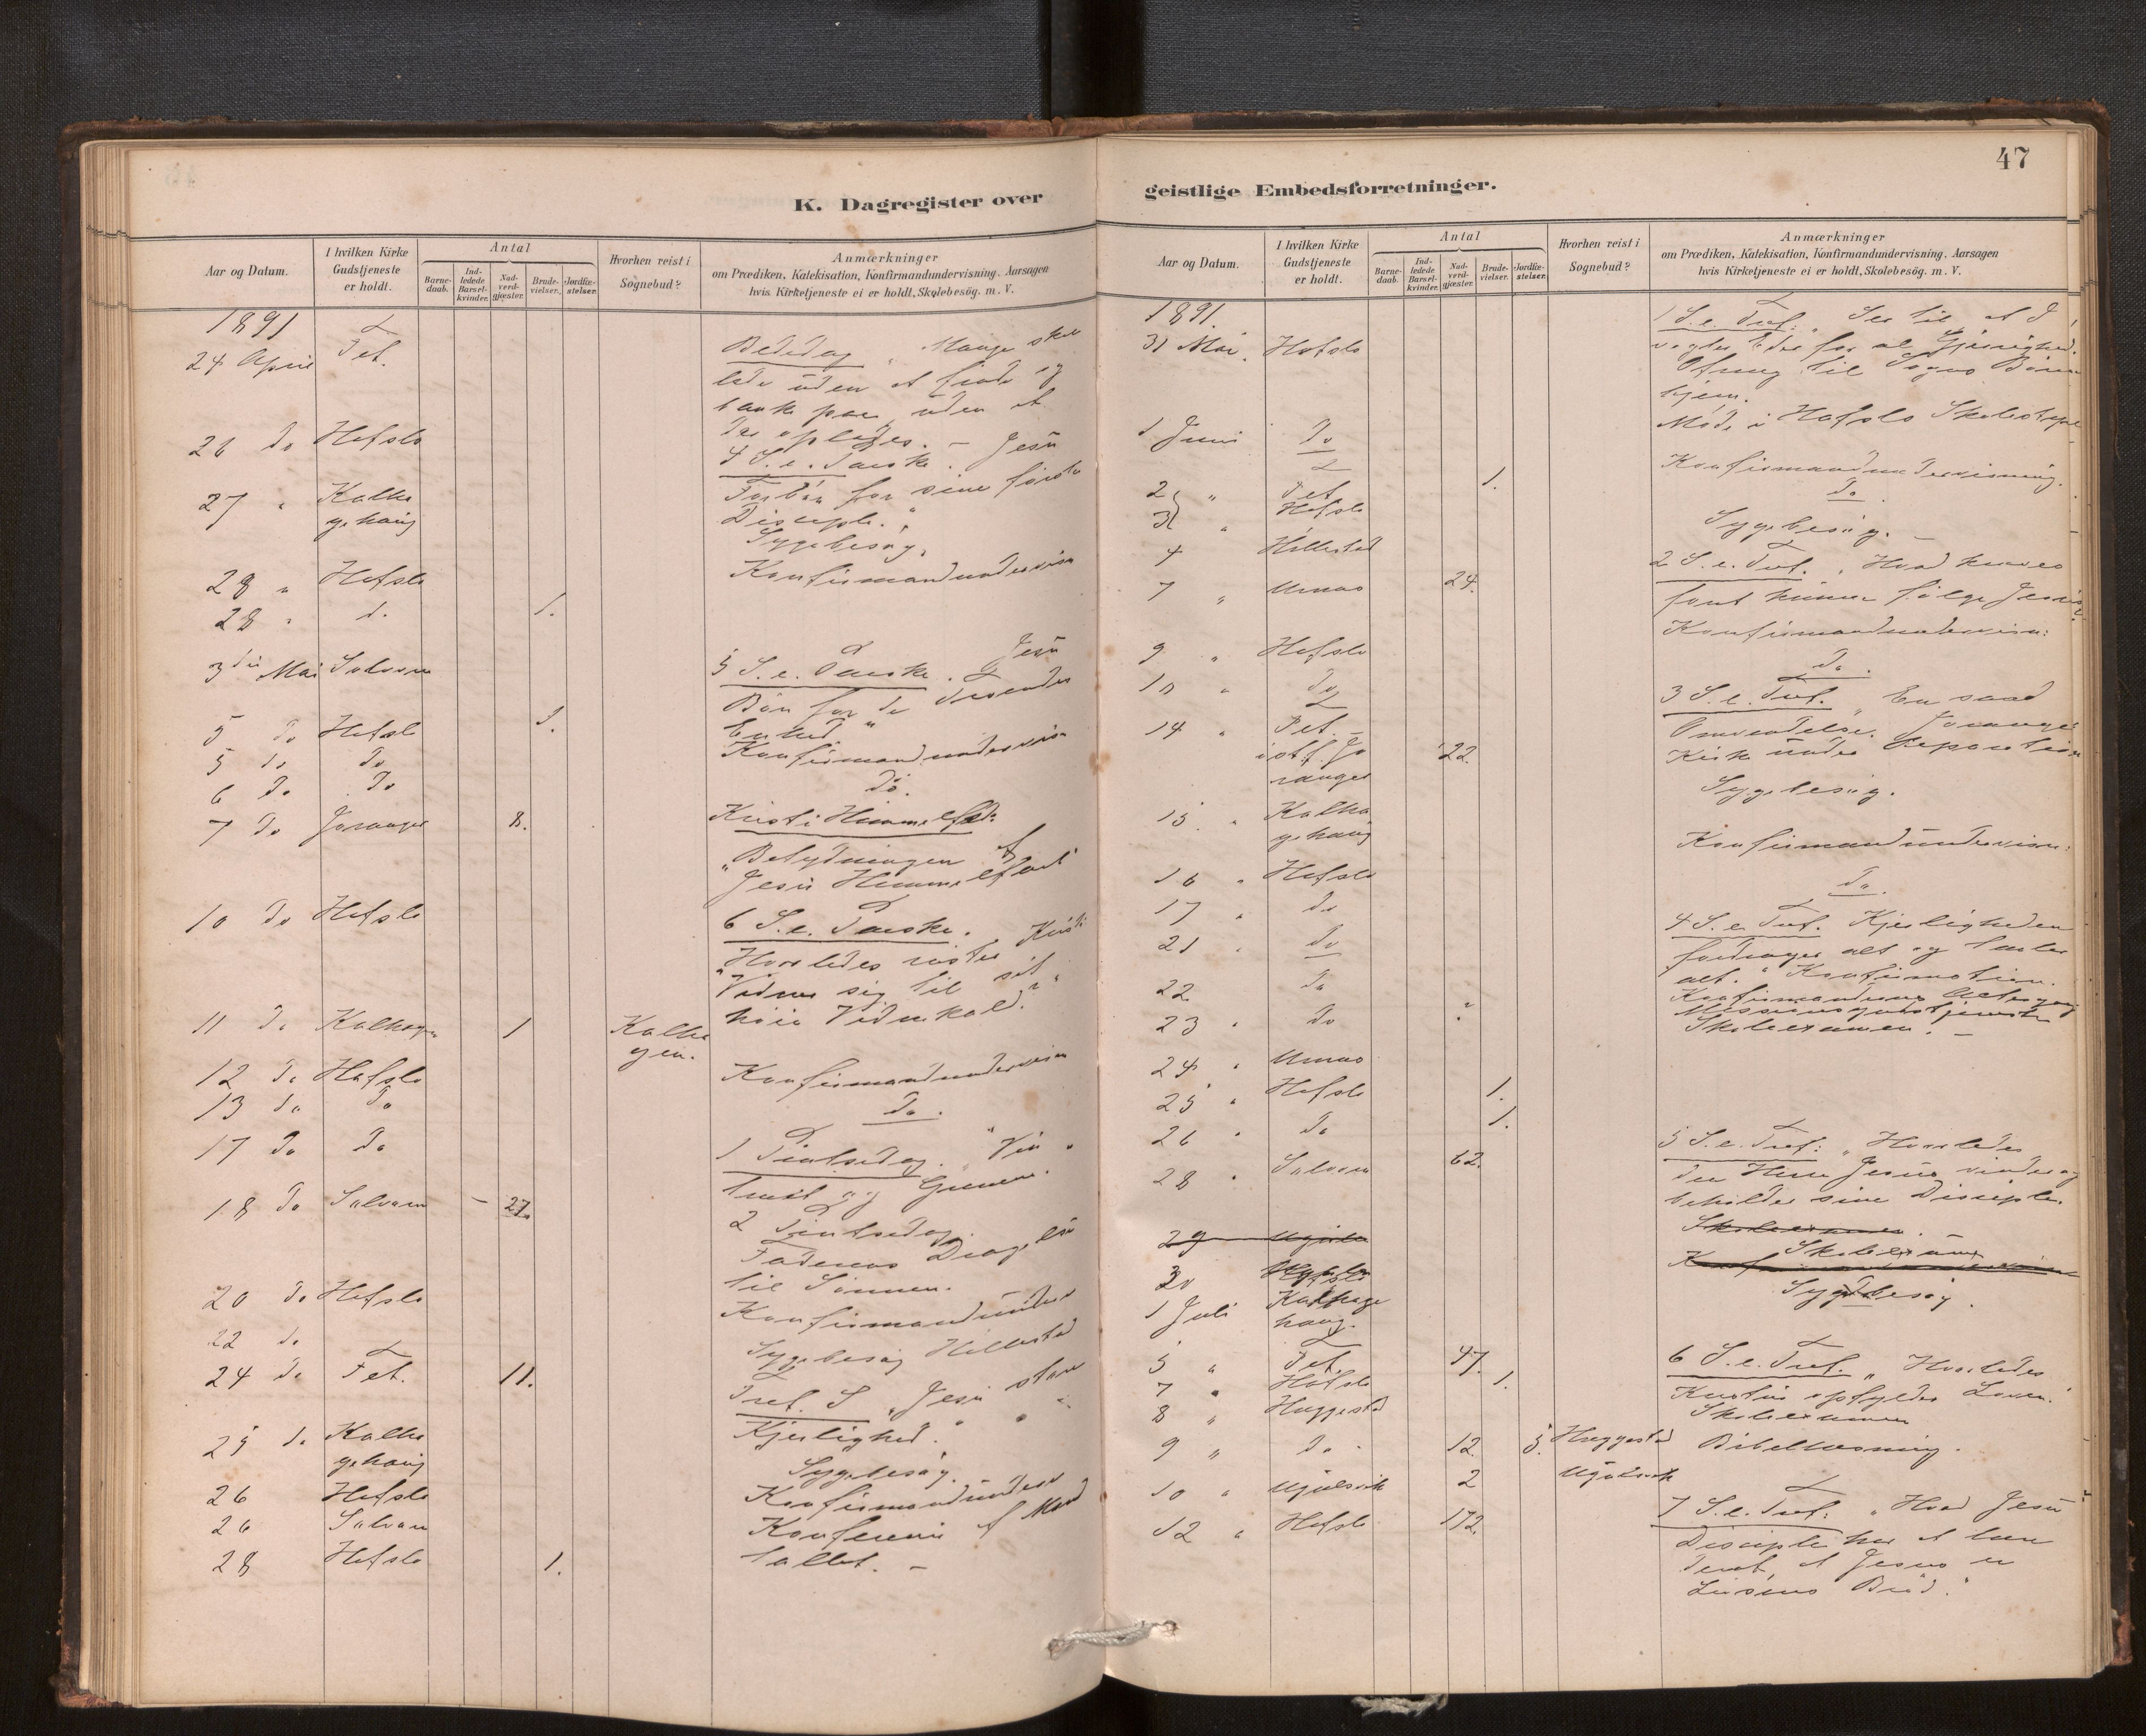 47
K. Dagregister over
geistlige Embedsforretninger.
Aar og Datum.
I hvilken Kirke Gudstjeneste er holdt.
Antal
Barnedaab.
Indledede Barselkvinder.
Nadverdgjæster.
Brudevielser.
Jordfæstelser.
Hvorhen reist i Sognebud?
Anmærkninger
om Prædiken, Katekisation, Konfirmandundervisning, Aarsagen
hvis Kirketjeneste ei er holdt, Skolebesög. m. V.
1891
24 April Fet. Bededag. Mange
lede uden at finde og
banke paa, uden at
der oplades. – Jesu
26 do Hafslo 4 S. e. Paaske.
Forbön for sine förste
Disciple."
27 " Kalha
gehaug Sygebesög.
28 " Hafslo Konfirmandundervisn
28 " d. 1.
3die Mai Solvorn 5 S. e. Paaske. Jesu
Bön for de Troendes
Enhed"
5 do Hafslo 1. Konfirmandundervisn
5 do do
6 do do do.
7 do Joranger 8. Kristi Himmelf
"Betydningen af
Jesu Himmelfart
10 do Hafslo 6 S. e. Paaske.
Hvorledes ruster Kristi
Vidner sig til sit
höie Vidnekald?"
11 do Kalhagen 1 Kalha
gen.
12 do Hafslo Konfirmandundervisn
13 do do do.
17 do do 1 Pintsedag.
18 do Solvorn – 27.
2 Pintsedag.
Faderens Dragelse
til Sönnen.
20 do Hafslo Konfirmandunder
22 do Sygebesög Hillestad
24 do Fet. 11. Tref. S "Jesu store
Kjerlighed."
25 do Kalha
gehaug Sygebesög.
26 Hafslo Konfirmandunder
26 Solvorn Konference
28 Hafslo 1.
Aar og Datum.
I hvilken Kirke Gudstjeneste er holdt.
Antal
Barnedaab.
Indledede Barselkvinder.
Nadverdgjæster.
Brudevielser.
Jordfæstelser.
Hvorhen reist i Sognebud?
Anmærkninger
om Prædiken, Katekisation, Konfirmandundervisning, Aarsagen
hvis Kirketjeneste ei er holdt, Skolebesög. m. V.
1891.
31 Mai. Hafslo 1 S. e. Tref. "Ser til at I
vogter Eder for al Gjerrighed.
Ofring til Sogns Börne
hjem.
1 Juni do Möde i Hafslo Skolestyre
2 " Fet 1. Konfirmandundervisning.
3 " Hafslo do.
4 Hillestad Sygebesög. –
7 " Urnes 24. 2 S. e. Tref. "Hvad kræves
for at kunne fölge Jesus?
9 " Hafslo Konfirmandundervisn:
10 " do do.
14 " Fet. –
istf. Jo
ranger 22. 3 S. e. Tref. "En sand
Omvendelse. Joranger
Kirke under Reparation
15 " Kalha
gehaug Sygebesög.
16 " Hafslo Konfirmandundervisn:
17 " do do.
21 " do 4 S. e. Tref. Kjerligheden
fordrager alt og taaler
alt." Konfirmation.
22 do Konfirmandernes Altergang
23 " do Missionsgudstjeneste
24 " Urnes Skoleexamen. –
25 " Hafslo 1.
26 " do 1.
28 " Solvorn 62. 5 S. e. Tref: "Hvorledes
den Herre Jesus vinder og
beholder sine Disciple.
29
30 Hafslo Skoleexam
1 Juli Kalhage
haug. Sygebesög.
5 " Fet. 47. 6 S. e. Tref. "Hvorledes
Kristus opfylder Loven.
7 " Hafslo 1.
8 " Huggestad Skoleexamen
9 " do. 12. 5. Huggestad Bibellæsning.
10 " Ugulsvik 2 Ugulsvik
12 " Hafslo 172. 7 S. e. Tref: "Hvad Jesu
Disciple har at lære
deraf, at Jesus er
Livsens Bröd."